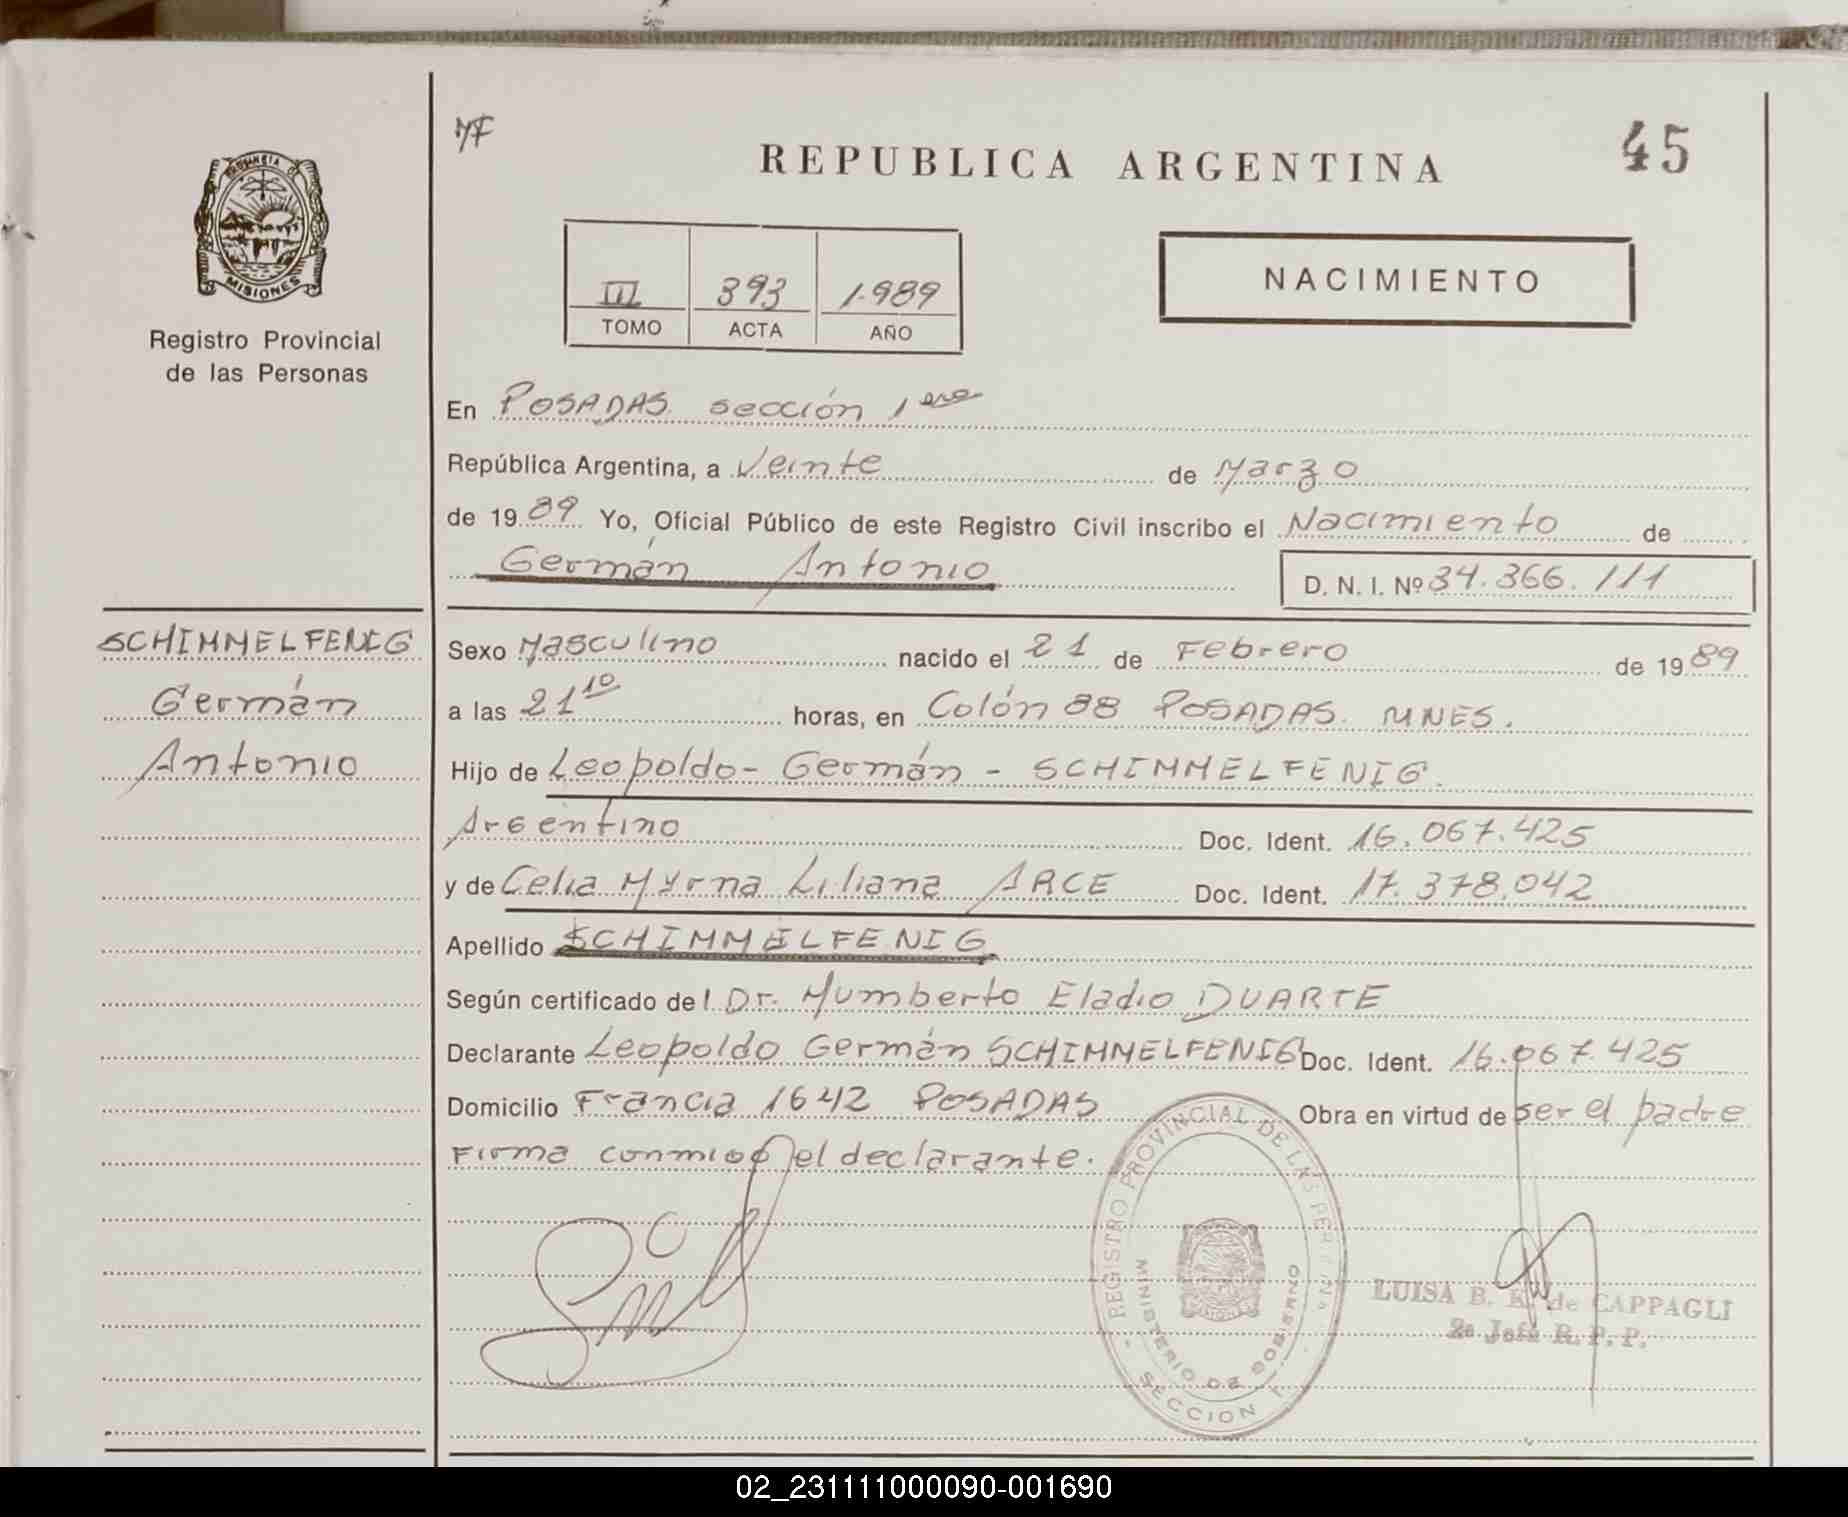 MF
REPUBLICA ARGENTINA
45
PROVINCIA DE
MISIONES
Registro Provincial
de las Personas
III 393 1.989
TOMO ACTA AÑO
NACIMIENTO
En POSADAS sección 1era
República Argentina, a Veinte de Marzo
de 1989 Yo, Oficial Público de este Registro Civil inscribo el Nacimiento de
Germán Antonio D. N. I. Nº 34.366.111
SCHIMMELFENIG
Germán
Antonio
Sexo Masculino nacido el 21 de Febrero de 1989
a las 21 10 horas, en Colón 88 POSADAS. MNES.
Hijo de Leopoldo- Germán - SCHIMMELFENIG.
Argentino Doc. Ident. 16.067.425
y de Celia Myrna Liliana ARCE Doc. Ident. 17.378.042
Apellido SCHIMMELFENIG
Según certificado del Dr. Humberto Eladio DUARTE
Declarante Leopoldo Germán SCHIMMELFENIG Doc. Ident. 16.067.425
Domicilio Francia 1642 POSADAS Obra en virtud de ser el padre
Firma conmigo el declarante.
REGISTRO PROVINCIAL DE LAS PERSONAS
MINISTERIO DE GOBIERNO
SECCION 1ª
LUISA B. K. de CAPPAGLI
2ª Jefa R. P. P.
02_231111000090-001690